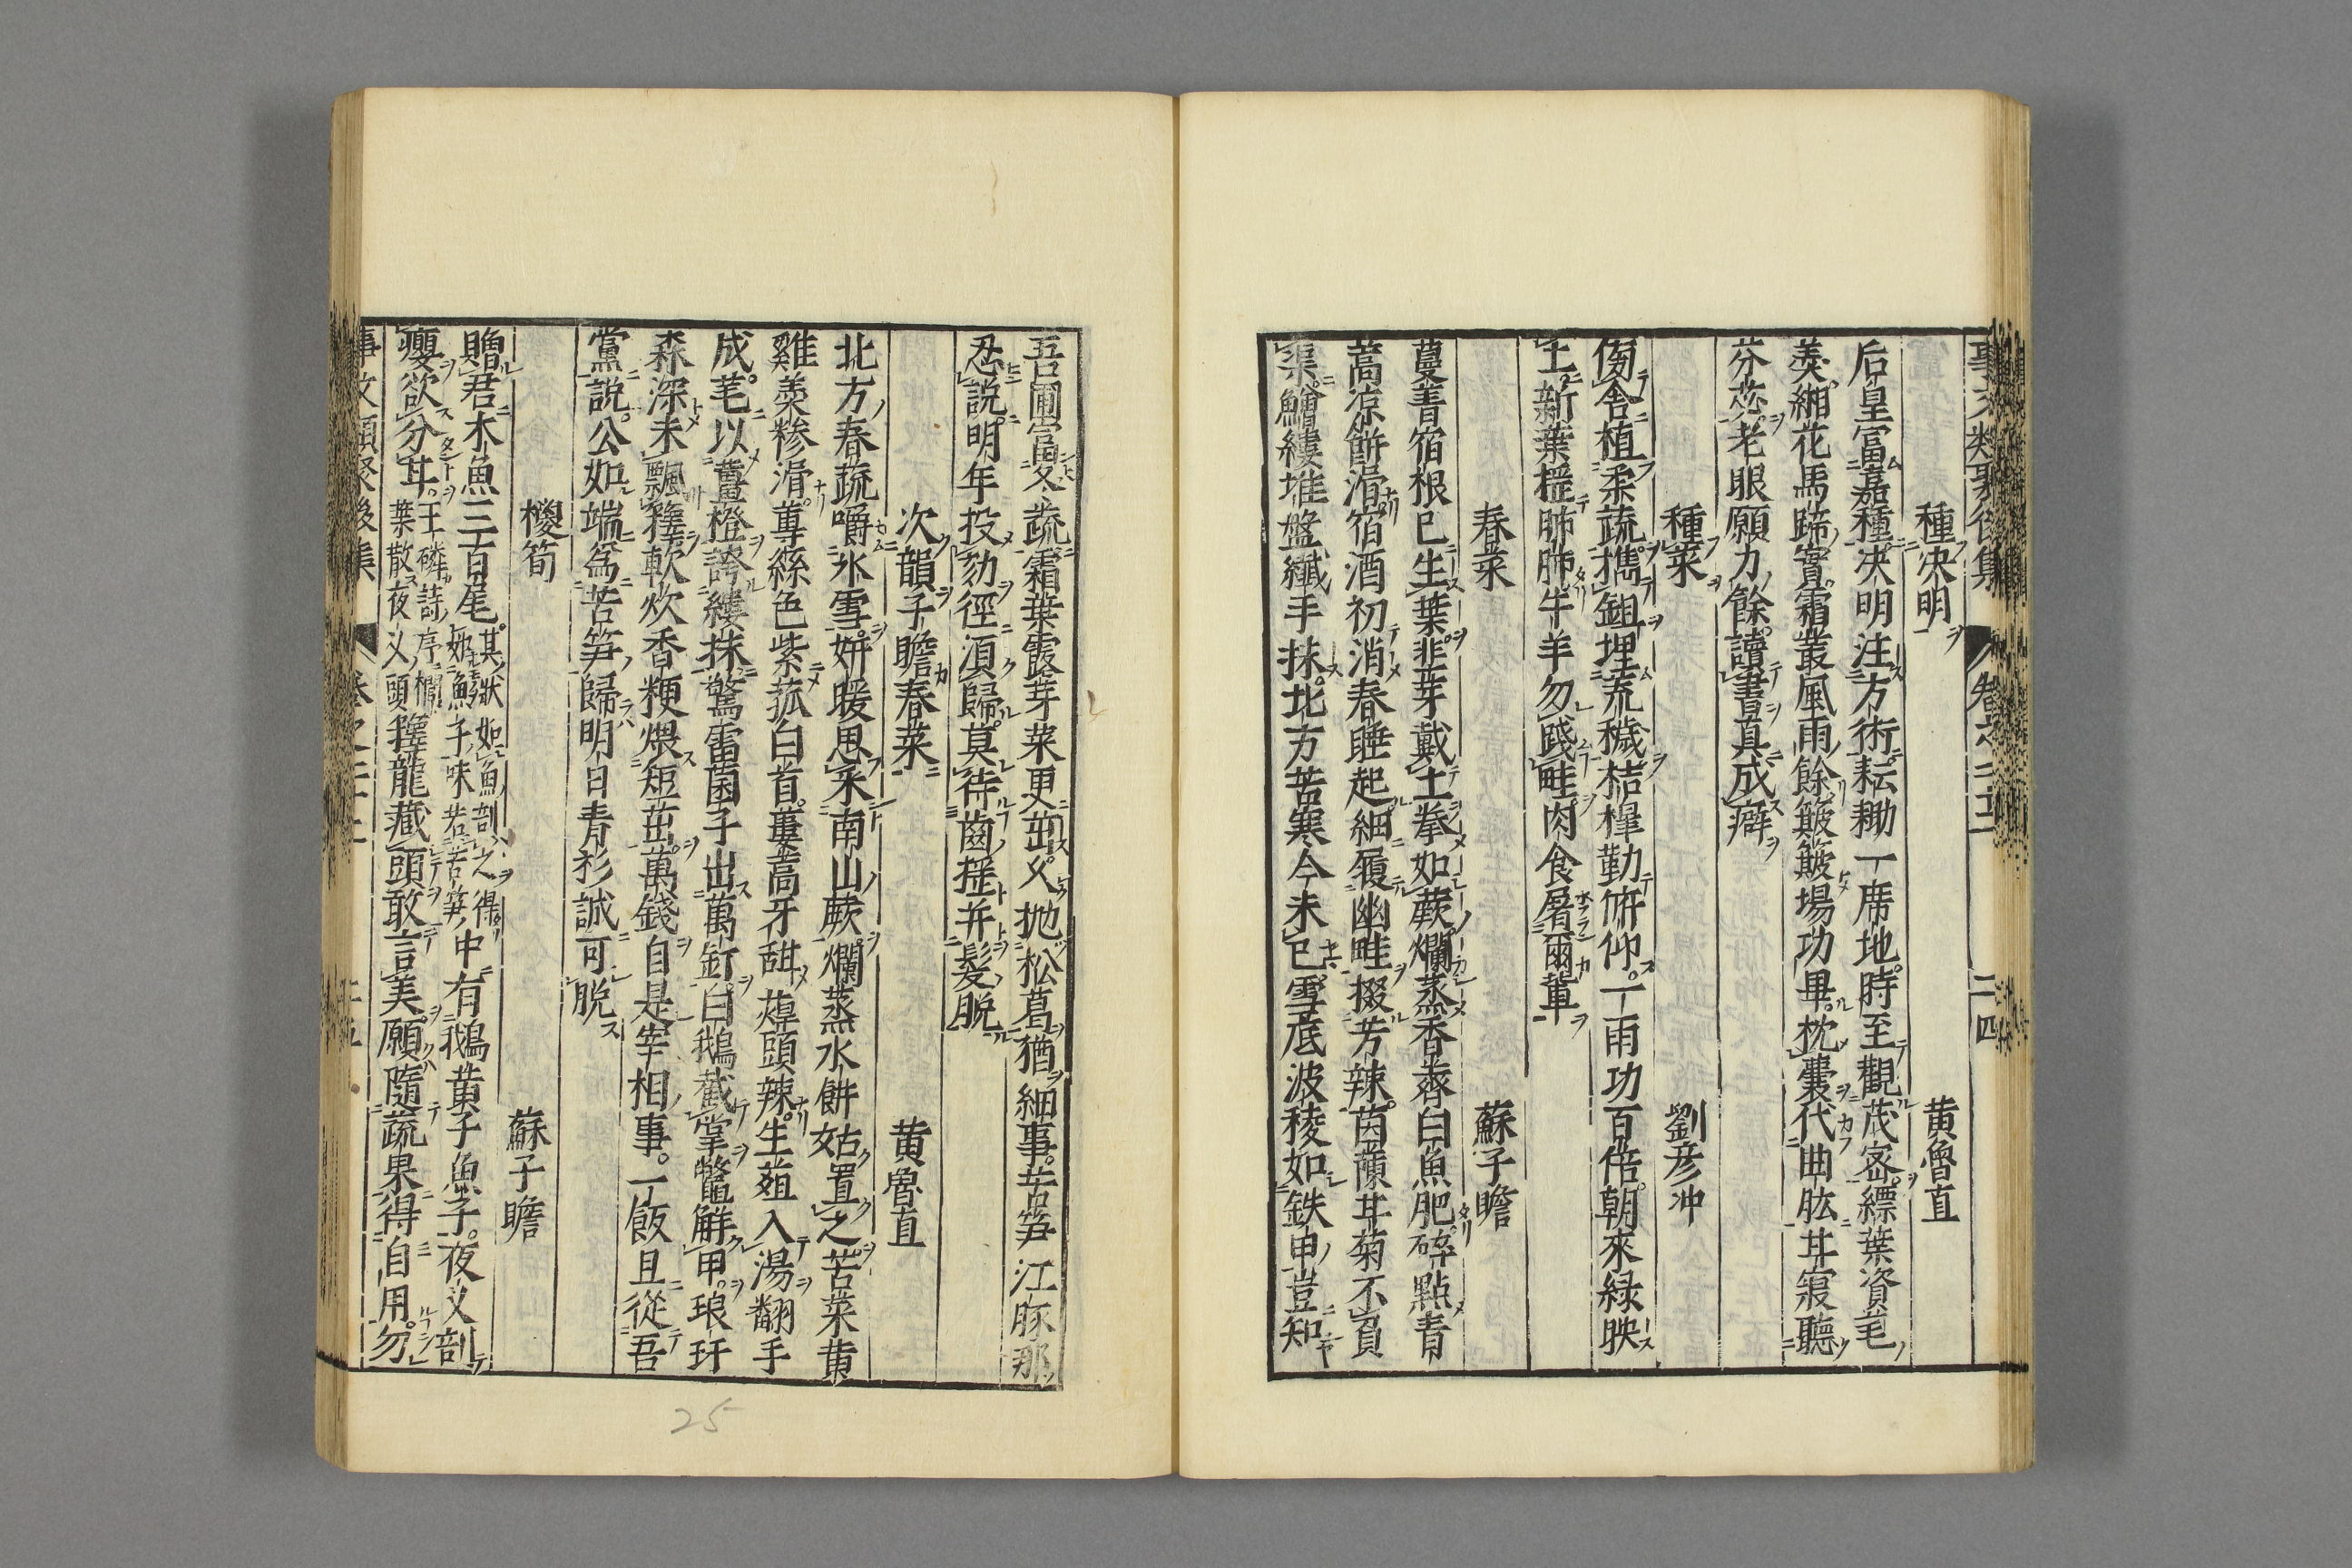 事文類聚後集 卷之二十二 二十四
種决明 黄魯直
后皇富嘉種决明注方術耘耡一席地時至觀茂宻縹葉資芼
羮緗花馬蹄實霜叢風雨餘簸簸塲功畢枕囊代曲肱甘寢聽
芬苾老眼願力餘讀書真成癖
種菜 劉彦冲
傍舎植柔蔬擕鉏埋荒穢桔槹勤俯仰一雨功百倍朝來緑映
土新葉揺肺肺牛羊勿踐畦肉食屠爾軰
春菜 蘇子瞻
蔓菁宿根已生葉韮芽戴土拳如蕨爛蒸香薺白魚肥碎點青
蒿凉餅滑宿酒初消春睡起細履幽畦掇芳辣茵蔯甘菊不負
渠鱠縷堆盤纖手抹北方苦寒今未已雪底波稜如鉄甲豈知
吾圃富冬蔬霜葉露芽菜更茁久抛松葛猶細事苦笋江豚那
忍說明年投劾徑湏歸莫待齒揺并髮脱
次韻子瞻春菜 黄魯直
北方春蔬嚼氷雪妍暖思采南山蕨爛蒸水餅姑置之苦菜黄
雞羮糝滑蓴絲色紫菰白首蔞蒿牙甜蔊頭辣生葅入湯翻手
成芼以薑橙誇縷抹驚雷菌子出萬釘白鵝截掌鼈解甲琅玕
森深未飄籜軟炊香粳煨短茁萬錢自是宰相事一飯且從吾
黨說公如端爲苦笋歸明日青衫誠可脱
椶筍 蘇子瞻
贈君木魚三百尾其狀如魚剖之得魿魚子味若苦笋中有鵝黄子魚子夜叉剖
癭欲分甘王磷詩序櫚葉散夜叉頭籜龍藏頭敢言美願隨蔬果得自用勿
事文類聚後集 卷之二十二 二十五
25